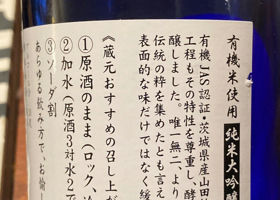 有機米使用 純米大吟醸
有機JAS認証・茨城県産山田
工程もその特性を尊重し、
醸しました。唯一無二、より
伝統の粋を集めたとも言え
表面的な味だけではなく緩
《蔵元おすすめの召し上が
①原酒のまま(ロック、
②加水(原酒3対水2で
③ソーダ割
あらゆる飲み方で、お愉し